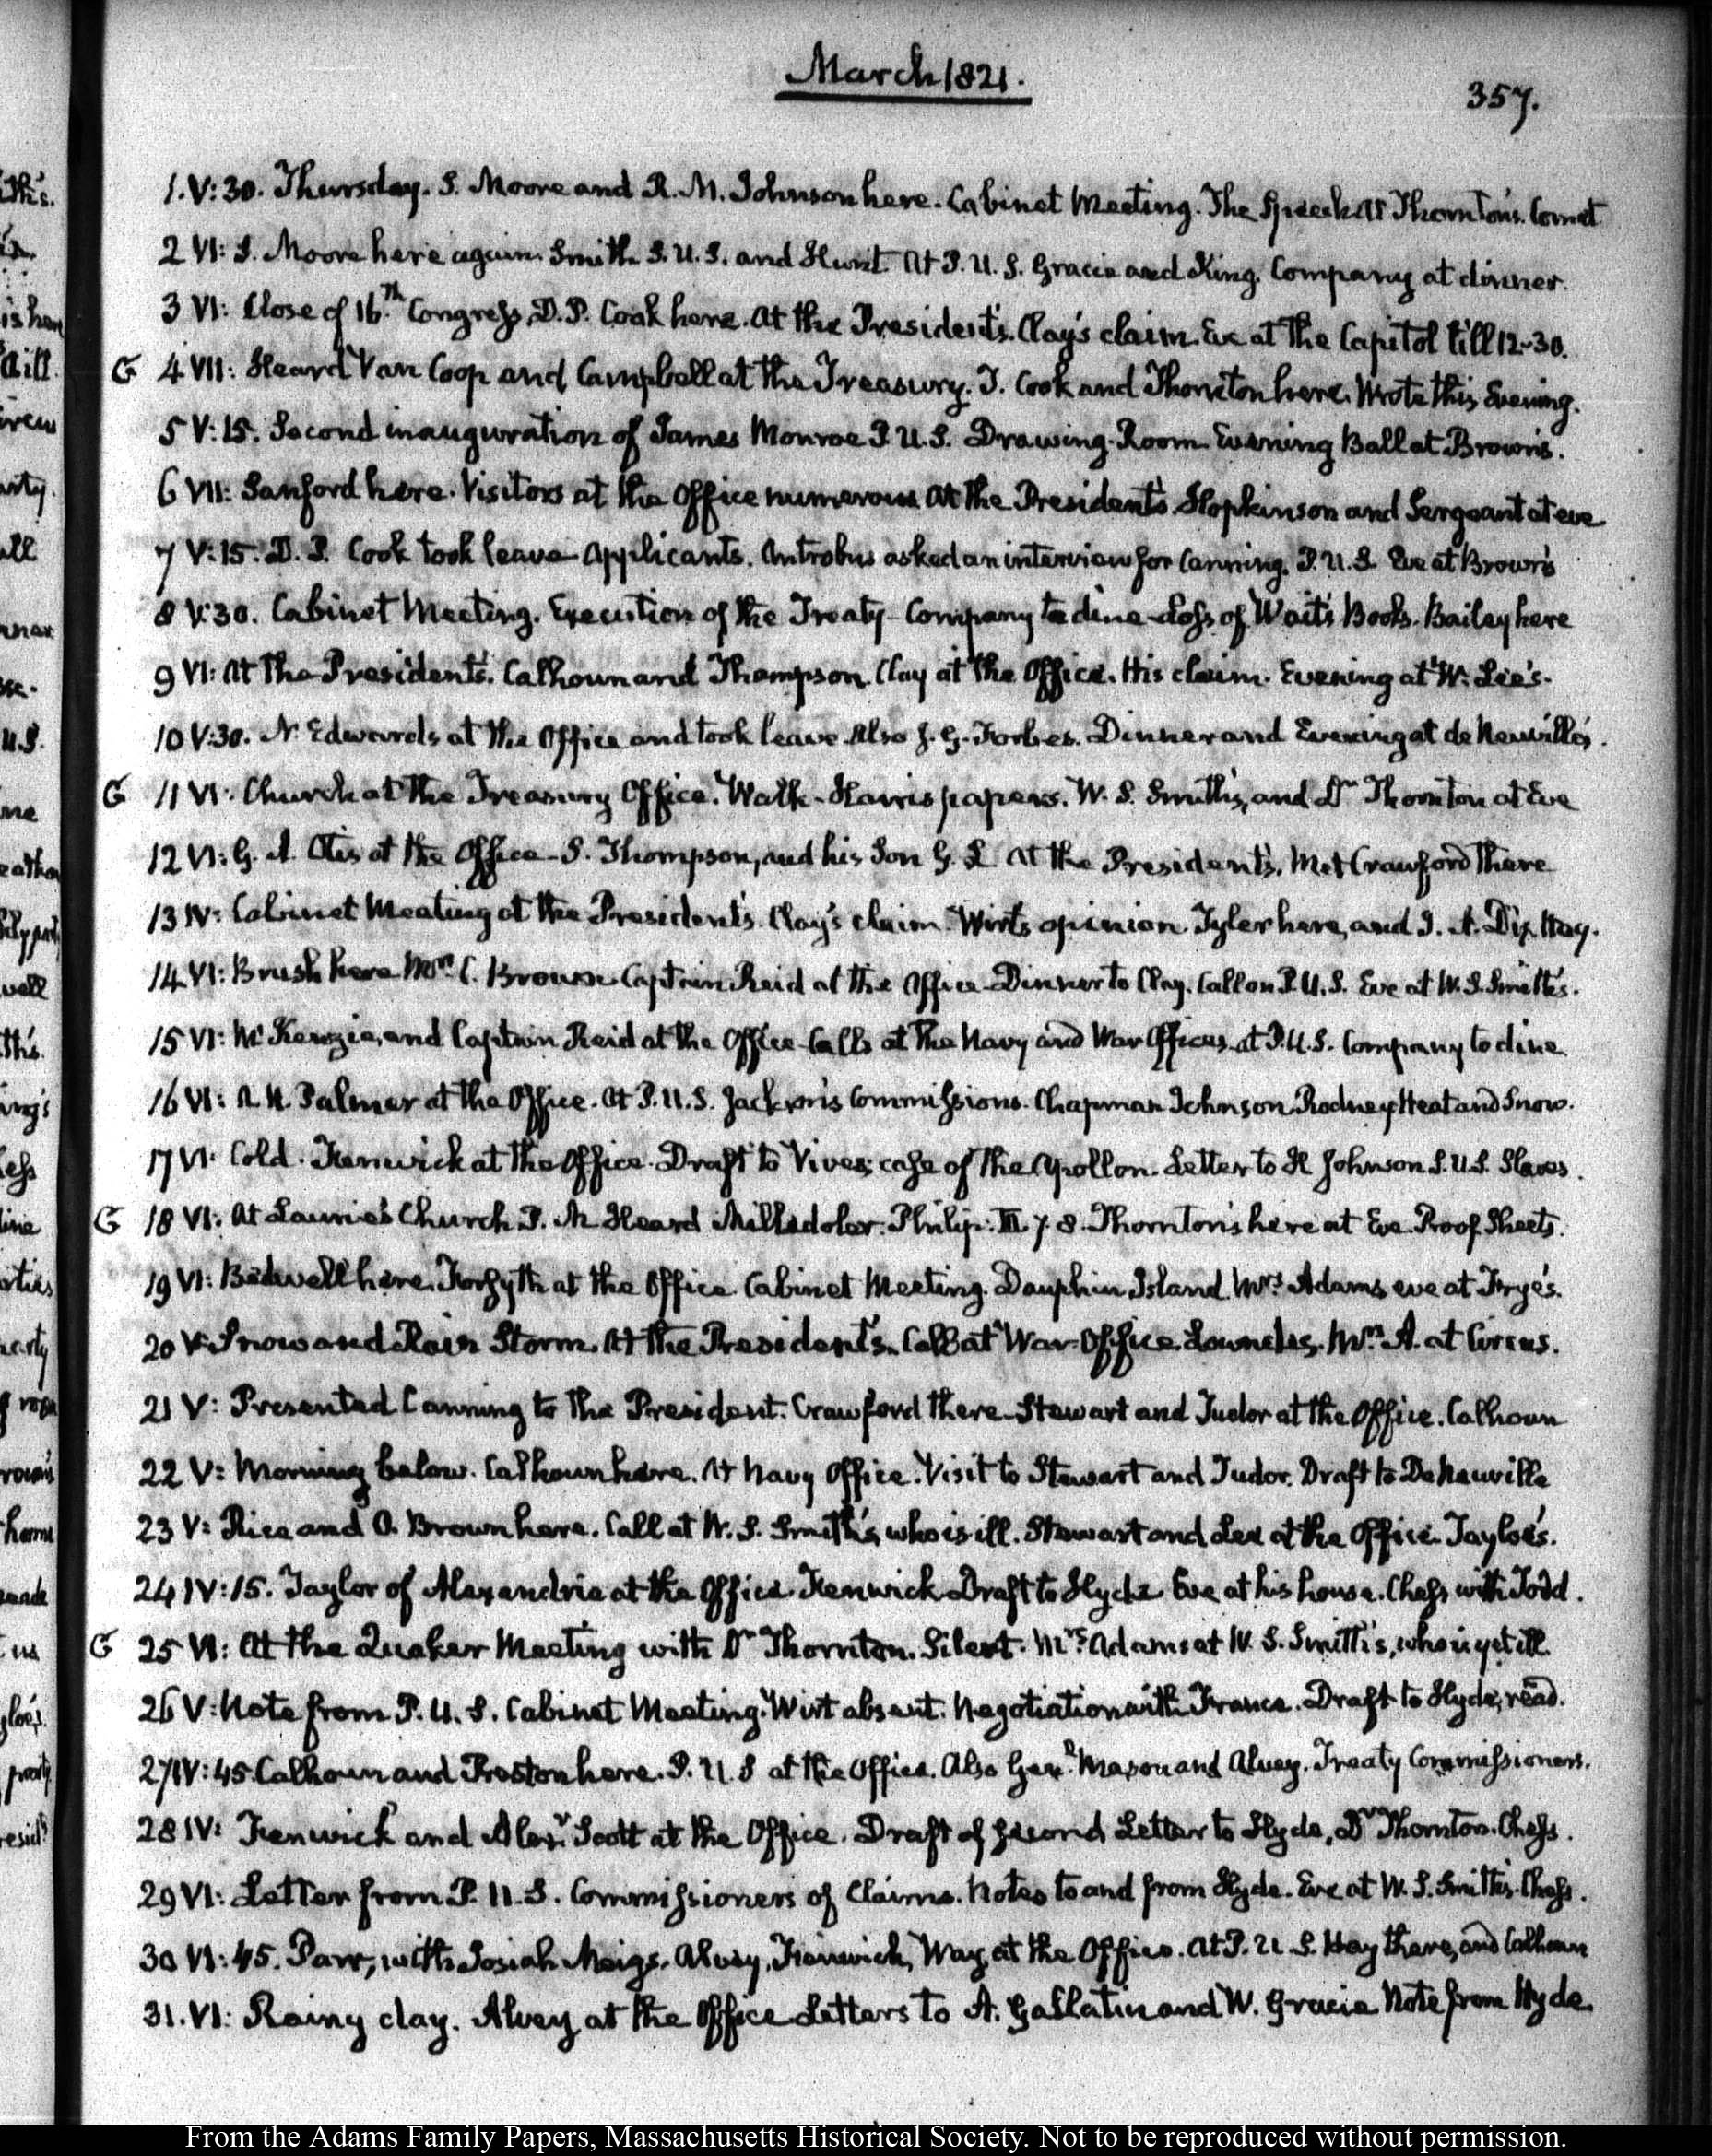 March 1821.
357.
1. V: 30. Thursday. S. Moore and R. M. Johnson here. Cabinet Meeting. The Speech At Thornton's. Comet
2 VI: S. Moore here again. Smith S. U. S. and Hunt. At P. U. S. Gracie and King. Company at dinner.
3 VI: Close of 16.th Congress. D. P. Cook here. At the President's. Clay's claim. Eve at the Capitol till 12-30.
G 4 VII: Heard Van Coop and Campbell at the Treasury. J. Cook and Thornton here. Wrote this Evening.
5 V: 15. Second inauguration of James Monroe P. U. S. Drawing-Room. Evening Ball at Brown's.
6 VII: Sanford here. Visitors at the Office numerous. At the President's. Hopkinson and Sergeant at eve
7 V: 15. D. P. Cook took leave. Applicants. Antrobus asked an interview for Canning. P. U. S. Eve at Brown's
8 V: 30. Cabinet Meeting. Execution of the Treaty. Company to dine. Loss of Wait's Books. Bailey here
9 VI: At the President's. Calhoun and Thompson. Clay at the Office. His claim. Evening at W. Lee's.
10 V: 30. N. Edwards at the Office and took leave. Also J. G. Forbes. Dinner and Evening at de Neuville's.
G 11 VI: Church at the Treasury Office. Walk. Harris papers. W. S. Smith's, and Dr Thornton at Eve
12 VI: G. A. Otis at the Office. S. Thompson, and his Son G. L. At the President's. Met Crawford there
13 IV: Cabinet Meeting at the President's. Clay's claim. Wirt's opinion. Tyler here, and J. A. Dix. Hay.
14 VI: Brush here. C. Brown Captain Reid at the Office. Dinner to Clay. Call on P. U. S. Eve at W. S. Smith's.
15 VI: McKenzie, and Captain Reid at the Office. Calls at the Navy and War Offices. at P. U. S. Company to dine.
16 VI: A. H. Palmer at the Office. At P. U. S. Jackson's Commissions. Chapman Johnson. Rodney. Heat and Snow.
17 VI: Cold. Fenwick at the Office. Draft to Vives; case of the Apollon. Letter to H Johnson S. U. S. Slaves.
G 18 VI: At Laurie's Church P. M. Heard Milledoler. Philip: III. 7. 8. Thornton's here at Eve. Proof Sheets.
19 VI: Bidwell here. Forsyth at the Office. Cabinet Meeting. Dauphin Island. Mrs Adams eve at Frye's.
20 V: Snow and Rain Storm. At the President's. Call at War-Office. Lowndes. Mrs A. at Circus.
21 V: Presented Canning to the President. Crawford there. Stewart and Tudor at the Office. Calhoun
22 V: Morning below. Calhoun here. At Navy Office. Visit to Stewart and Tudor. Draft to De Neuville
23 V: Rice and O. Brown here. Call at W. S. Smith's, who is ill. Stewart and Lee at the Office. Tayloe's.
24 IV: 15. Taylor of Alexandria at the Office. Fenwick. Draft to Hyde. Eve at his house. Chess with Todd.
G 25 VI: At the Quaker Meeting with Dr Thornton. Silent. Mrs Adams at W. S. Smith's, who is yet ill.
26 V: Note from P. U. S. Cabinet Meeting. Wirt absent. Negotiation with France. Draft to Hyde, read.
27 IV: 45. Calhoun and Preston here. P. U. S at the Office. Also Genl Mason and Alvey. Treaty Commissioners.
28 IV: Fenwick and Alexr Scott at the Office. Draft of second Letter to Hyde, Dr Thornton. Chess.
29 VI: Letter from P. U. S. Commissioners of Claims. Notes to and from Hyde. Eve at W. S. Smith's. Chess.
30 VI: 45. Parr, with Josiah Meigs. Alvey, Fenwick, Way, at the Office. At P. U. S. Hay there, and Calhoun
31. VI: Rainy day. Alvey at the Office. Letters to A. Gallatin and W. Gracie. Note from Hyde.
From the Adams Family Papers, Massachusetts Historical Society. Not to be reproduced without permission.